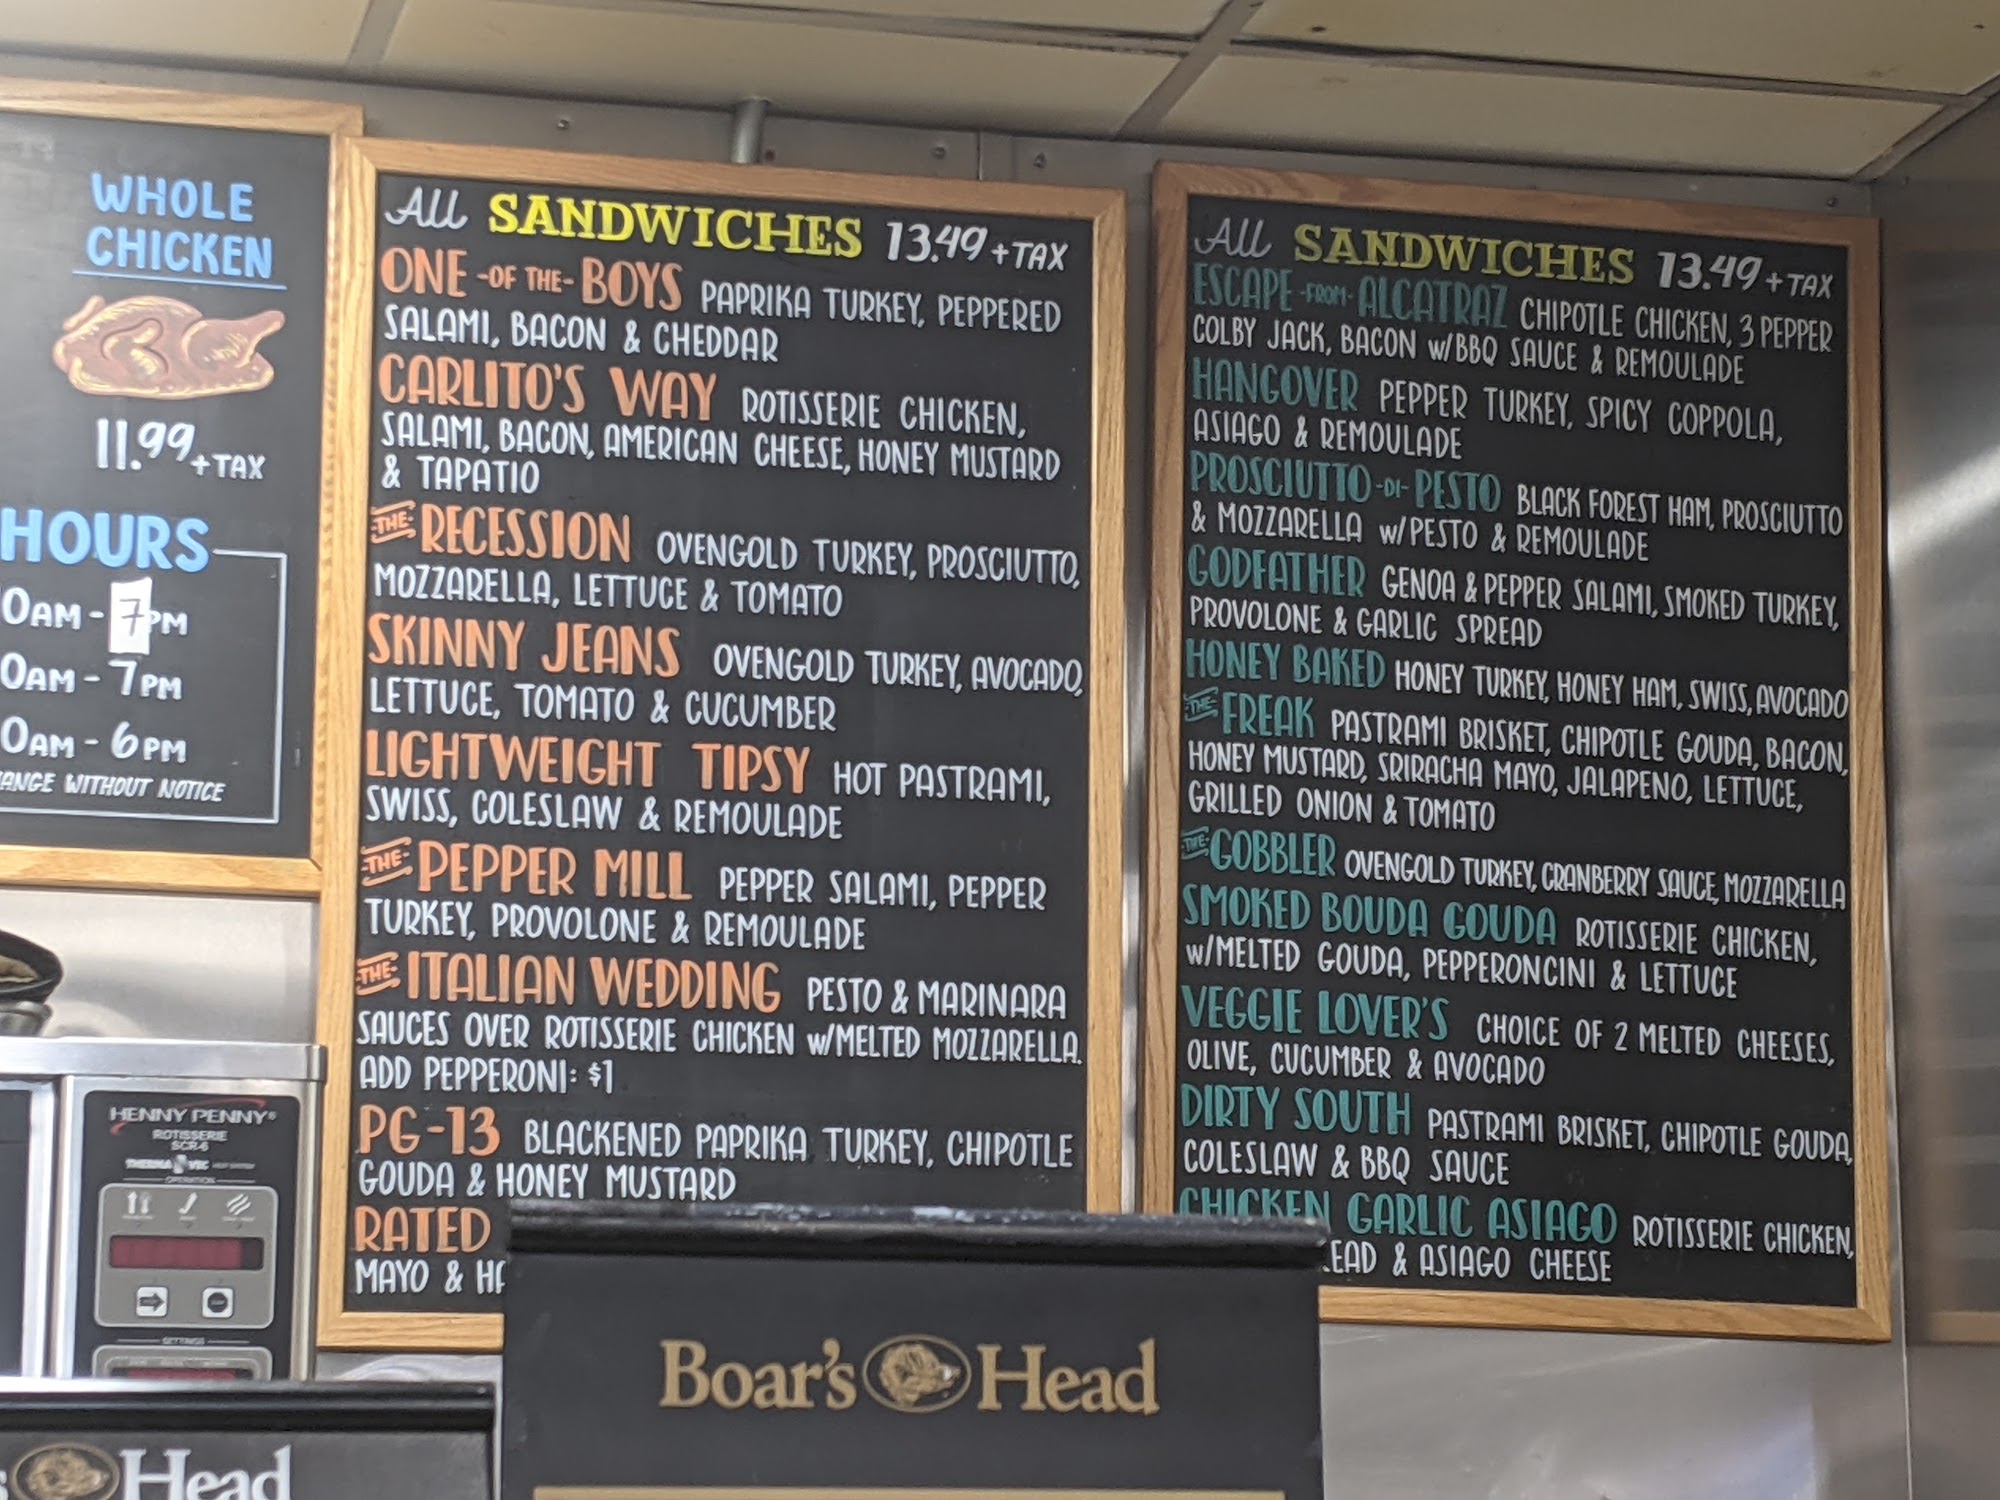 WHOLE
CHICKEN
11.99 + TAX
HOURS
0AM - 7PM
0AM - 7PM
0AM - 6PM
ANGE WITHOUT NOTICE
All SANDWICHES 13.49 + TAX
ONE -OF THE- BOYS PAPRIKA TURKEY, PEPPERED
SALAMI, BACON & CHEDDAR
CARLITO'S WAY ROTISSERIE CHICKEN,
SALAMI, BACON, AMERICAN CHEESE, HONEY MUSTARD
& TAPATIO
-THE- RECESSION OVENGOLD TURKEY, PROSCIUTTO,
MOZZARELLA, LETTUCE & TOMATO
SKINNY JEANS OVENGOLD TURKEY, AVOCADO,
LETTUCE, TOMATO & CUCUMBER
LIGHTWEIGHT TIPSY HOT PASTRAMI,
SWISS, COLESLAW & REMOULADE
-THE- PEPPER MILL PEPPER SALAMI, PEPPER
TURKEY, PROVOLONE & REMOULADE
-THE- ITALIAN WEDDING PESTO & MARINARA
SAUCES OVER ROTISSERIE CHICKEN w/MELTED MOZZARELLA.
ADD PEPPERONI: $1
PG-13 BLACKENED PAPRIKA TURKEY, CHIPOTLE
GOUDA & HONEY MUSTARD
RATED
MAYO & HA
All SANDWICHES 13.49 + TAX
ESCAPE -FROM- ALCATRAZ CHIPOTLE CHICKEN, 3 PEPPER
COLBY JACK, BACON w/BBQ SAUCE & REMOULADE
HANGOVER PEPPER TURKEY, SPICY COPPOLA,
ASIAGO & REMOULADE
PROSCIUTTO -DI- PESTO BLACK FOREST HAM, PROSCIUTTO
& MOZZARELLA w/PESTO & REMOULADE
GODFATHER GENOA & PEPPER SALAMI, SMOKED TURKEY,
PROVOLONE & GARLIC SPREAD
HONEY BAKED HONEY TURKEY, HONEY HAM, SWISS, AVOCADO
-THE- FREAK PASTRAMI BRISKET, CHIPOTLE GOUDA, BACON,
HONEY MUSTARD, SRIRACHA MAYO, JALAPENO, LETTUCE,
GRILLED ONION & TOMATO
-THE- GOBBLER OVENGOLD TURKEY, CRANBERRY SAUCE, MOZZARELLA
SMOKED BOUDA GOUDA ROTISSERIE CHICKEN,
w/MELTED GOUDA, PEPPERONCINI & LETTUCE
VEGGIE LOVER'S CHOICE OF 2 MELTED CHEESES,
OLIVE, CUCUMBER & AVOCADO
DIRTY SOUTH PASTRAMI BRISKET, CHIPOTLE GOUDA,
COLESLAW & BBQ SAUCE
CHICKEN GARLIC ASIAGO ROTISSERIE CHICKEN,
EAD & ASIAGO CHEESE
HENNY PENNY®
ROTISSERIE
SCR-6
OPERATION
SETTINGS
Boar's Head
s Head